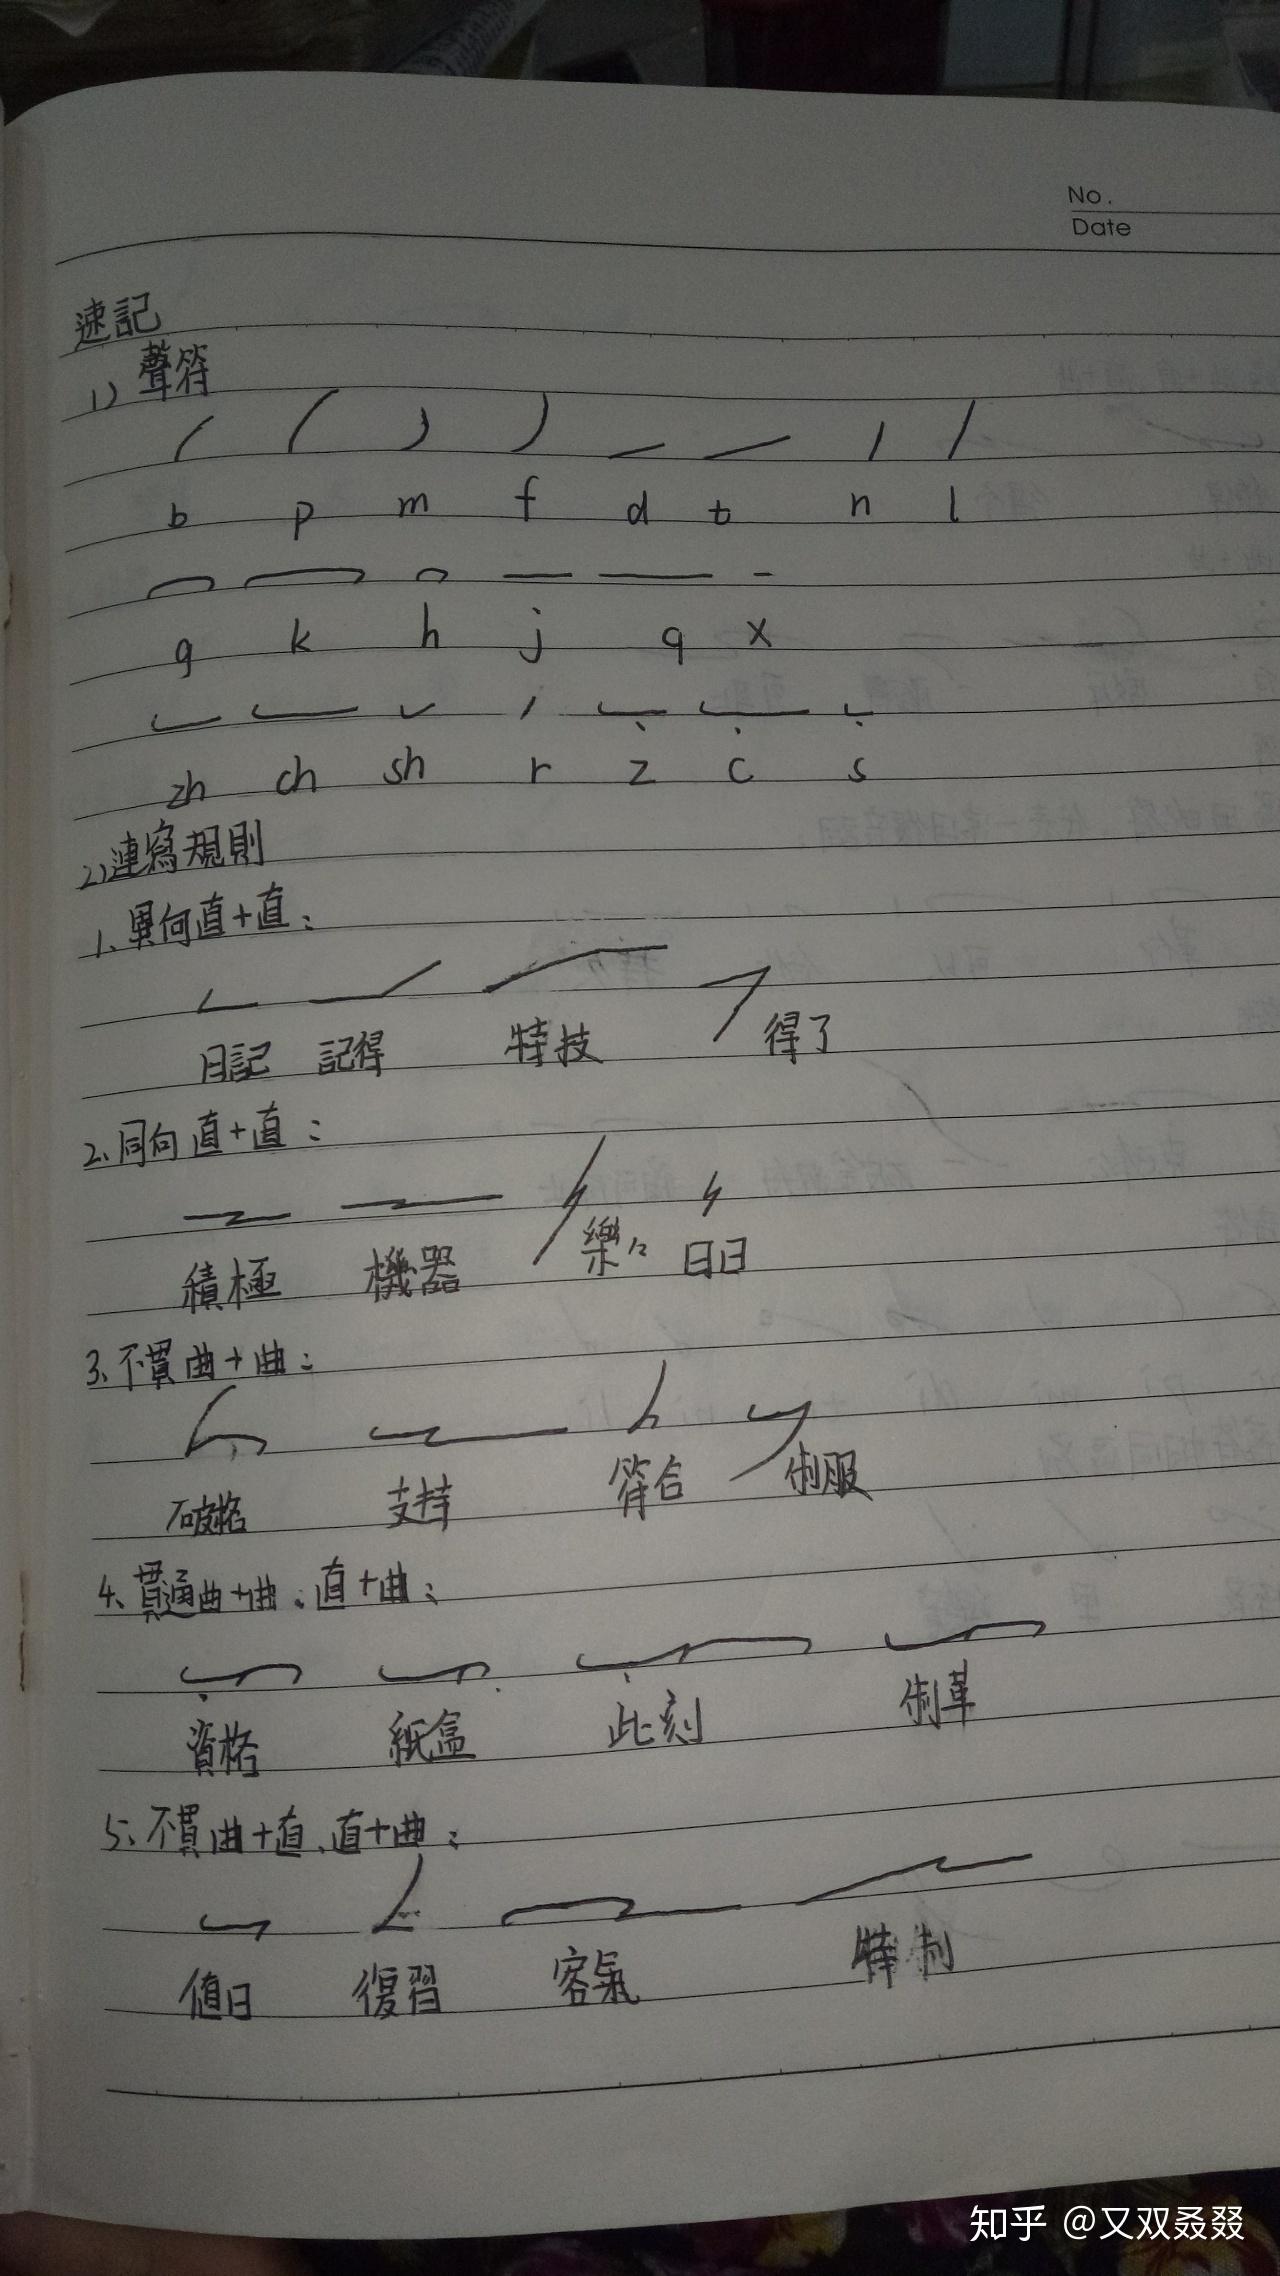 No.
Date
速記
1) 聲符
b p m f d t n l
g k h j q x
zh ch sh r z c s
2) 連寫規則
1、異向直+直：
日記 記得 特技 得了
2、同向直+直：
積極 機器 樂々 日日
3、不貫曲+曲：
破格 支持 符合 制服
4、貫通曲+曲、直+曲：
資格 紙盒 此刻 制革
5、不貫曲+直、直+曲：
值日 復習 客氣 特制
知乎 @又双叒叕